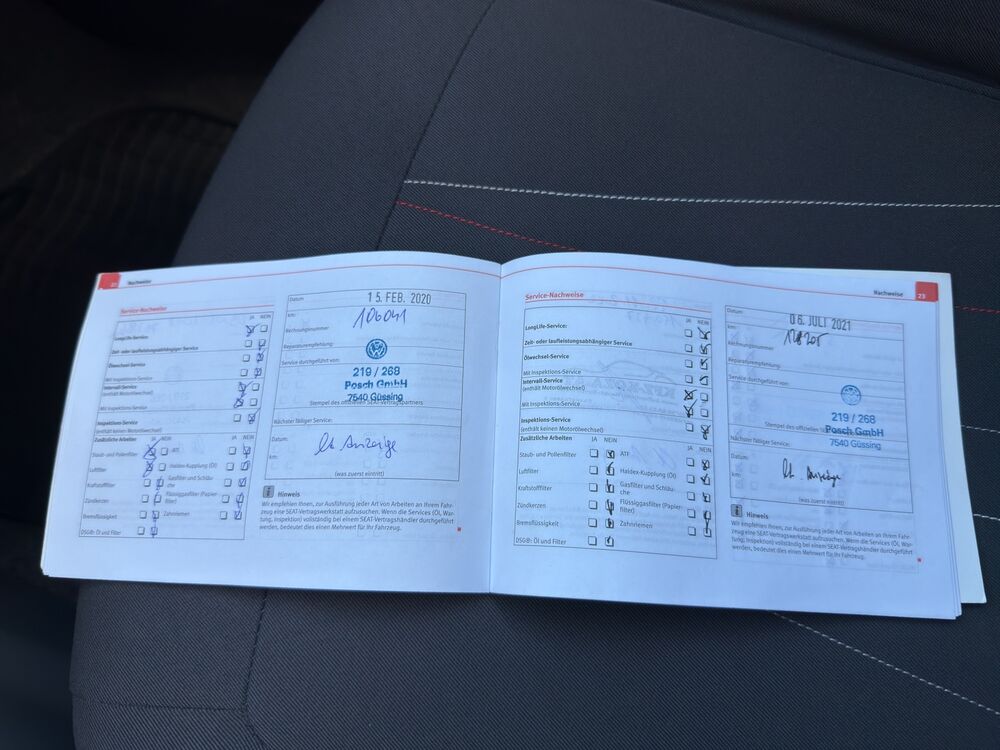 22 Nachweise
Service-Nachweise
JA NEIN
LongLife-Service:
Zeit- oder laufleistungsabhängiger Service
Ölwechsel-Service
Mit Inspektions-Service
Intervall-Service
(enthält Motorölwechsel)
Mit Inspektions-Service
Inspektions-Service
(enthält keinen Motorölwechsel)
Zusätzliche Arbeiten JA NEIN JA NEIN
Staub- und Pollenfilter ATF
Luftfilter Haldex-Kupplung (Öl)
Kraftstofffilter Gasfilter und Schläu-
che
Zündkerzen Flüssiggasfilter (Papier-
filter)
Bremsflüssigkeit Zahnriemen
DSG®: Öl und Filter
Datum 15. FEB. 2020
km: 106041
Rechnungsnummer
Reparaturempfehlung:
Service durchgeführt von:
219 / 268
Posch GmbH
7540 Güssing
Stempel des offiziellen SEAT-Vertragspartners
Nächster fälliger Service:
Datum: lt. Anzeige
km:
(was zuerst eintritt)
Hinweis
Wir empfehlen Ihnen, zur Ausführung jeder Art von Arbeiten an Ihrem Fahr-
zeug eine SEAT-Vertragswerkstatt aufzusuchen. Wenn die Services (Öl, War-
tung, Inspektion) vollständig bei einem SEAT-Vertragshändler durchgeführt
werden, bedeutet dies einen Mehrwert für Ihr Fahrzeug.
Nachweise 23
Service-Nachweise
JA NEIN
LongLife-Service:
Zeit- oder laufleistungsabhängiger Service
Ölwechsel-Service
Mit Inspektions-Service
Intervall-Service
(enthält Motorölwechsel)
Mit Inspektions-Service
Inspektions-Service
(enthält keinen Motorölwechsel)
Zusätzliche Arbeiten JA NEIN JA NEIN
Staub- und Pollenfilter ATF
Luftfilter Haldex-Kupplung (Öl)
Kraftstofffilter Gasfilter und Schläu-
che
Zündkerzen Flüssiggasfilter (Papier-
filter)
Bremsflüssigkeit Zahnriemen
DSG®: Öl und Filter
Datum: 06. JULI 2021
km:
Rechnungsnummer
Reparaturempfehlung:
Service durchgeführt von:
219 / 268
Stempel des offiziellen Posch GmbH
7540 Güssing
Nächster fälliger Service:
Datum: lt. Anzeige
km:
(was zuerst eintritt)
Hinweis
Wir empfehlen Ihnen, zur Ausführung jeder Art von Arbeiten an Ihrem Fahr-
zeug eine SEAT-Vertragswerkstatt aufzusuchen. Wenn die Services (Öl, War-
tung, Inspektion) vollständig bei einem SEAT-Vertragshändler durchgeführt
werden, bedeutet dies einen Mehrwert für Ihr Fahrzeug.